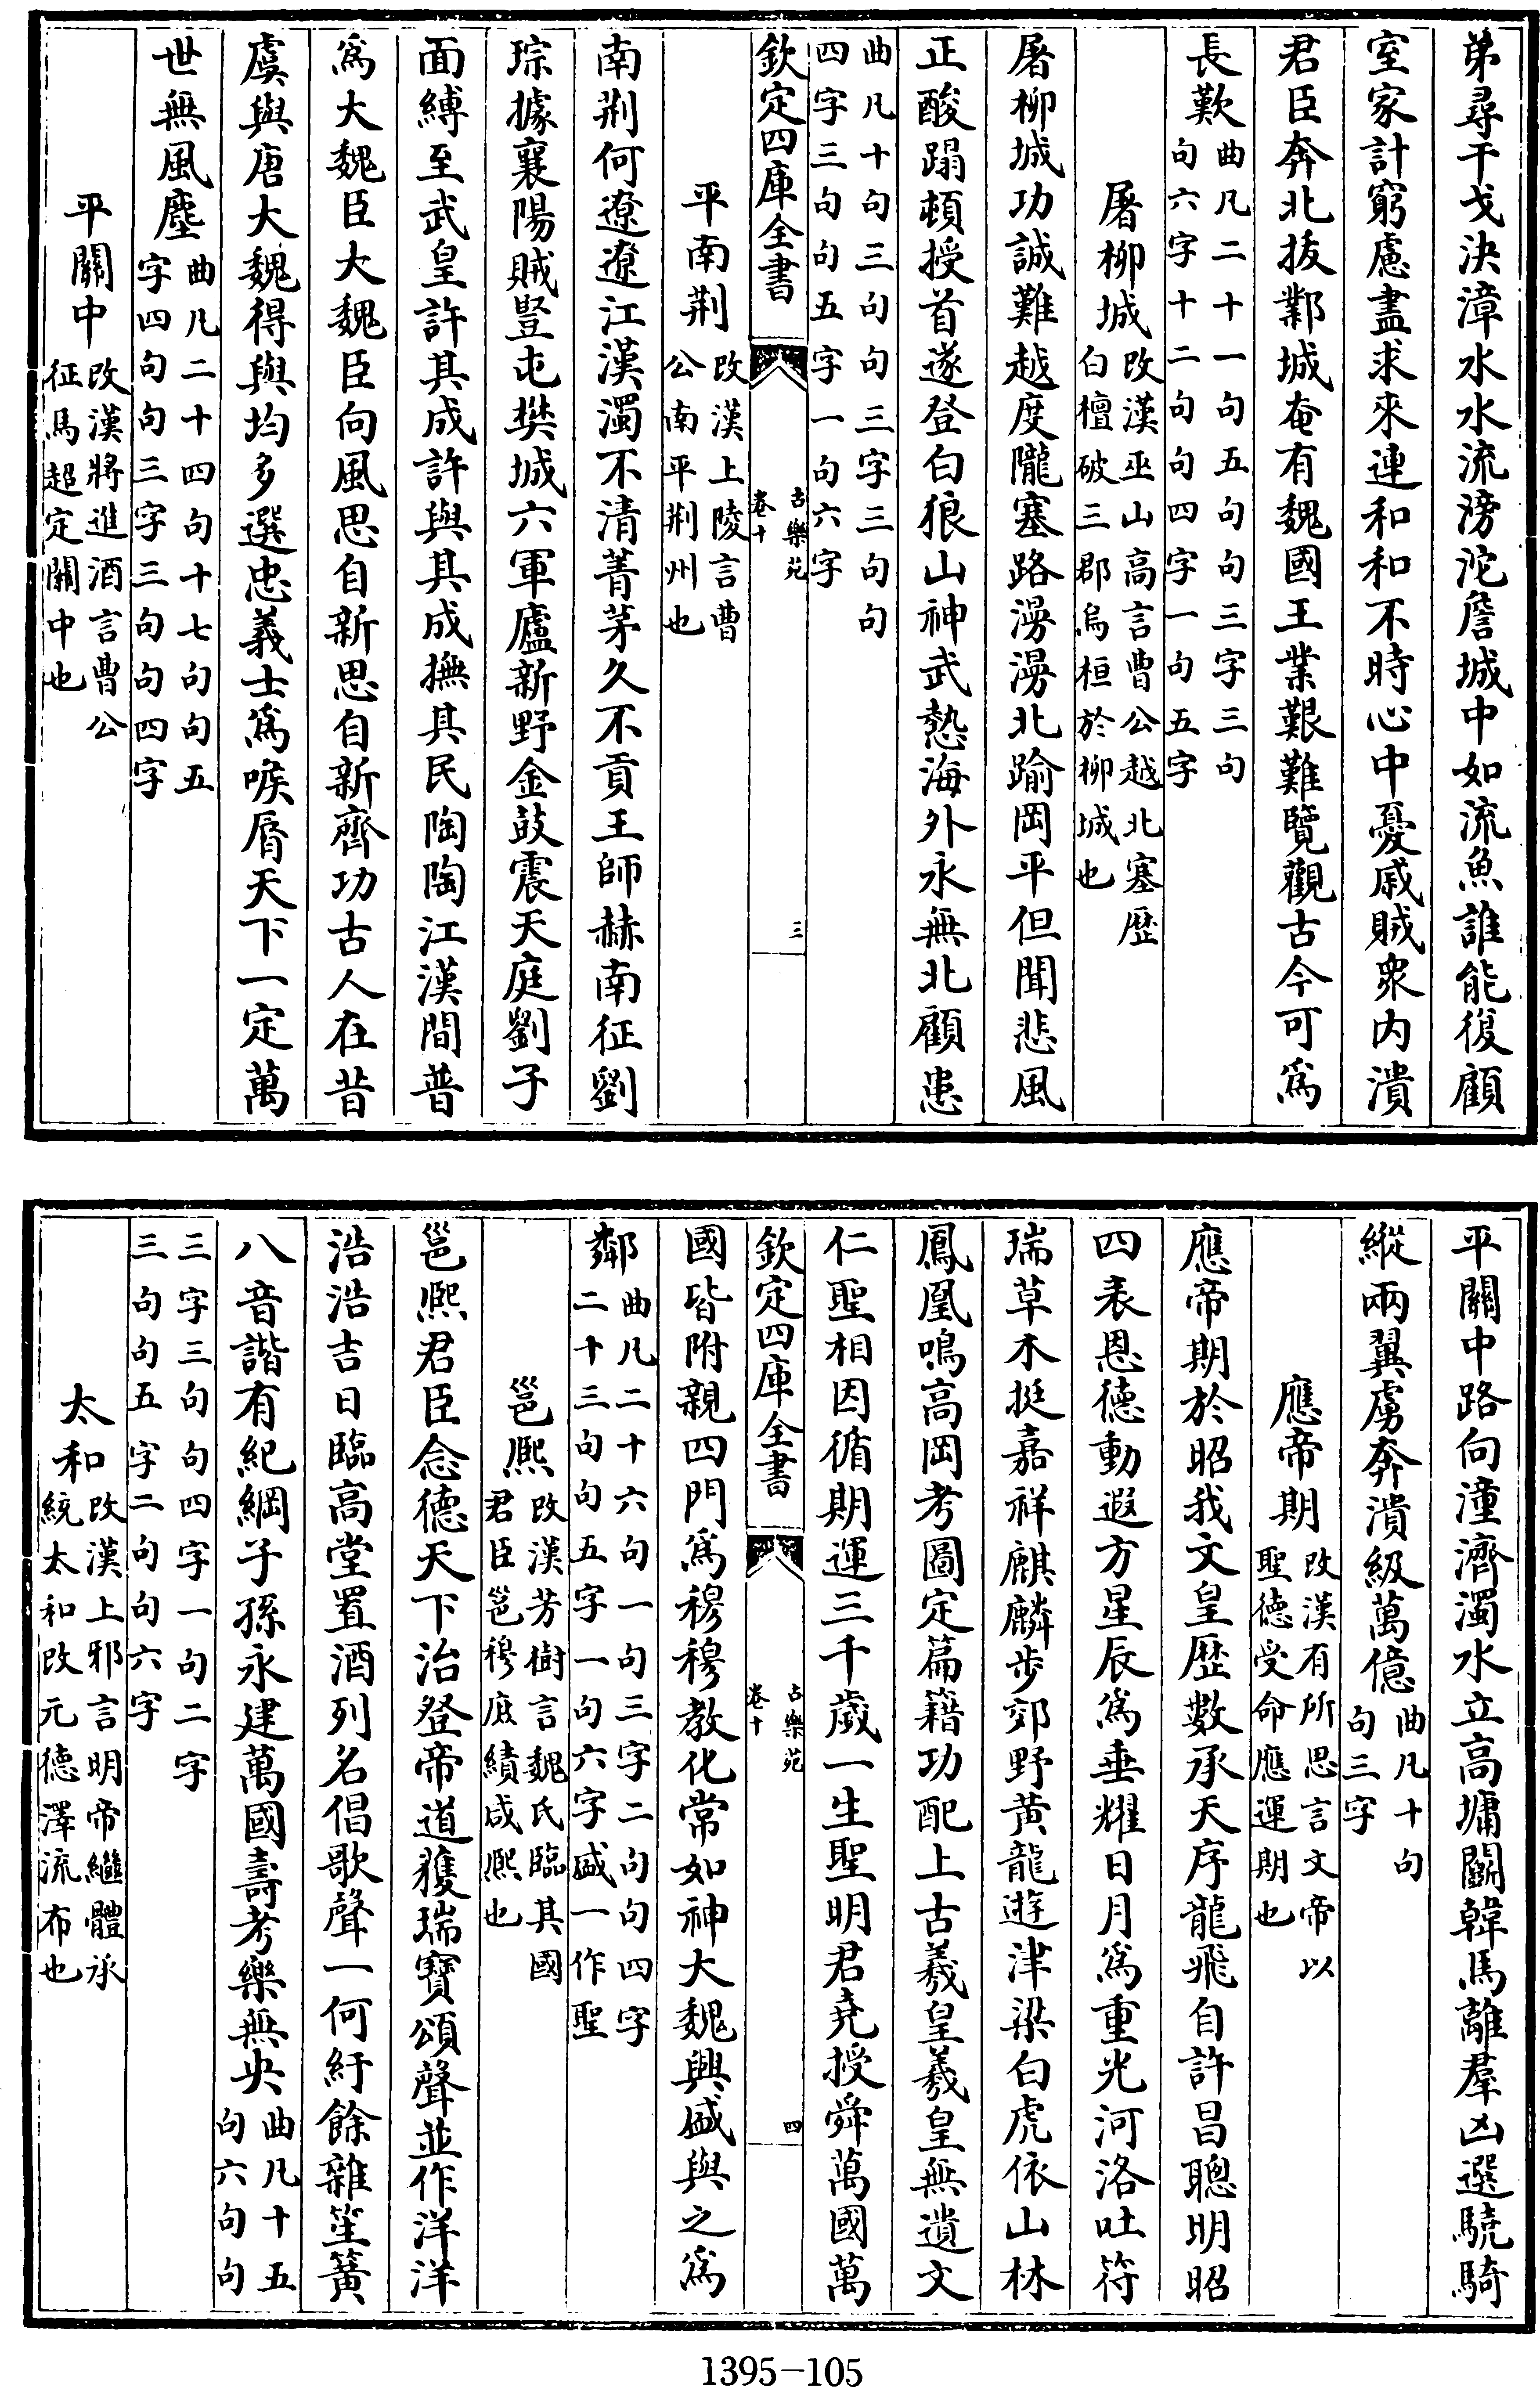 弟尋干戈決漳水水流滂沱詹城中如流魚誰能復顧
室家計窮慮盡求來連和和不時心中憂戚賊衆内潰
君臣奔北抜鄴城奄有魏國王業艱難覽觀古今可為
長歎曲凡二十一句五句句三字三句
句六字十二句句四字一句五字
屠柳城改漢巫山高言曹公越北塞歴
白檀破三郡烏桓於柳城也
屠柳城功誠難越度隴塞路漫漫北踰岡平但聞悲風
正酸蹋頓授首遂登白狼山神武慹海外永無北顧患
曲凡十句三句句三字三句句
四字三句句五字一句六字
欽定四庫全書
古樂苑
卷十
三
平南荆改漢上陵言曹
公南平荆州也
南荆何遼遼江漢濁不清菁茅久不貢王師赫南征劉
琮據襄陽賊𢙣屯樊城六軍廬新野金鼓震天庭劉子
面縛至武皇許其成許與其成撫其民陶陶江漢間普
為大魏臣大魏臣向風思自新思自新齊功古人在昔
虞與唐大魏得與均多選忠義士為喉脣天下一定萬
世無風塵曲凡二十四句十七句句五
字四句句三字三句句四字
平關中改漢將進酒言曹公
征馬超定關中也
平關中路向潼濟濁水立高墉鬬韓馬離羣凶選驍騎
縱兩翼虜奔潰級萬億曲凡十句
句三字
應帝期改漢有所思言文帝以
聖德受命應運期也
應帝期於昭我文皇歴數承天序龍飛自許昌聰明昭
四表恩德動遐方星辰為垂耀日月為重光河洛吐符
瑞草木挺嘉祥麒麟步郊野黄龍遊津梁白虎依山林
鳳凰鳴高岡考圖定篇籍功配上古羲皇羲皇無遺文
仁聖相因循期運三千歲一生聖明君堯授舜萬國萬
欽定四庫全書
古樂苑
卷十
四
國皆附親四門為穆穆教化常如神大魏興盛與之為
鄰曲凡二十六句一句三字二句句四字
二十三句句五字一句六字盛一作聖
邕熙改漢芳樹言魏氏臨其國
君臣邕穆庶績咸熙也
邕熙君臣念德天下治登帝道獲瑞寶頌聲並作洋洋
浩浩吉日臨高堂置酒列名倡歌聲一何紆餘雜笙簧
八音諧有紀綱子孫永建萬國壽考樂無央曲凡十五
句六句句
三字三句句四字一句二字
三句句五字二句句六字
太和改漢上邪言明帝繼體承
統太和改元德澤流布也
1395-105